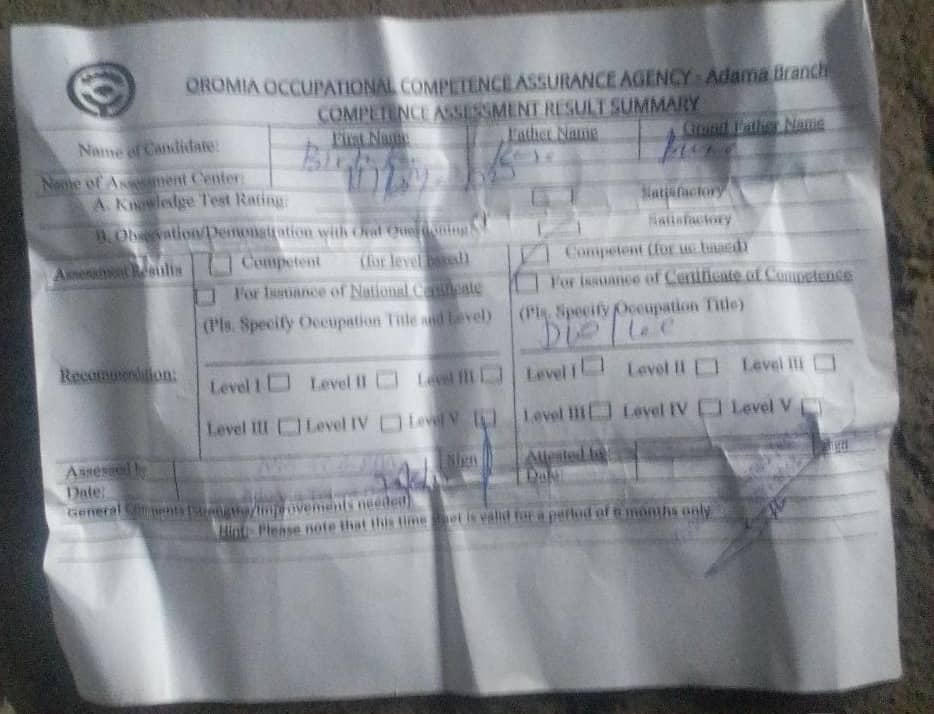 OROMIA OCCUPATIONAL COMPETENCE ASSURANCE AGENCY - Adama Branch
COMPETENCE ASSESSMENT RESULT SUMMARY
Name of Candidate: First Name Father Name Grand Father Name
Name of Assessment Center:
A. Knowledge Test Rating: Satisfactory
B. Observation/Demonstration with Oral Questioning Satisfactory
Assessment Results Competent (for level based) Competent (for uc based)
For Issuance of National Certificate For Issuance of Certificate of Competence
(Pls. Specify Occupation Title and Level) (Pls. Specify Occupation Title)
Recommendation: Level I Level II Level III Level I Level II Level III
Level III Level IV Level V Level III Level IV Level V
Assessed by Sign Attested by Sign
Date: Date:
General Comments (Strengths/Improvements needed)
Hint:- Please note that this time sheet is valid for a period of 6 months only